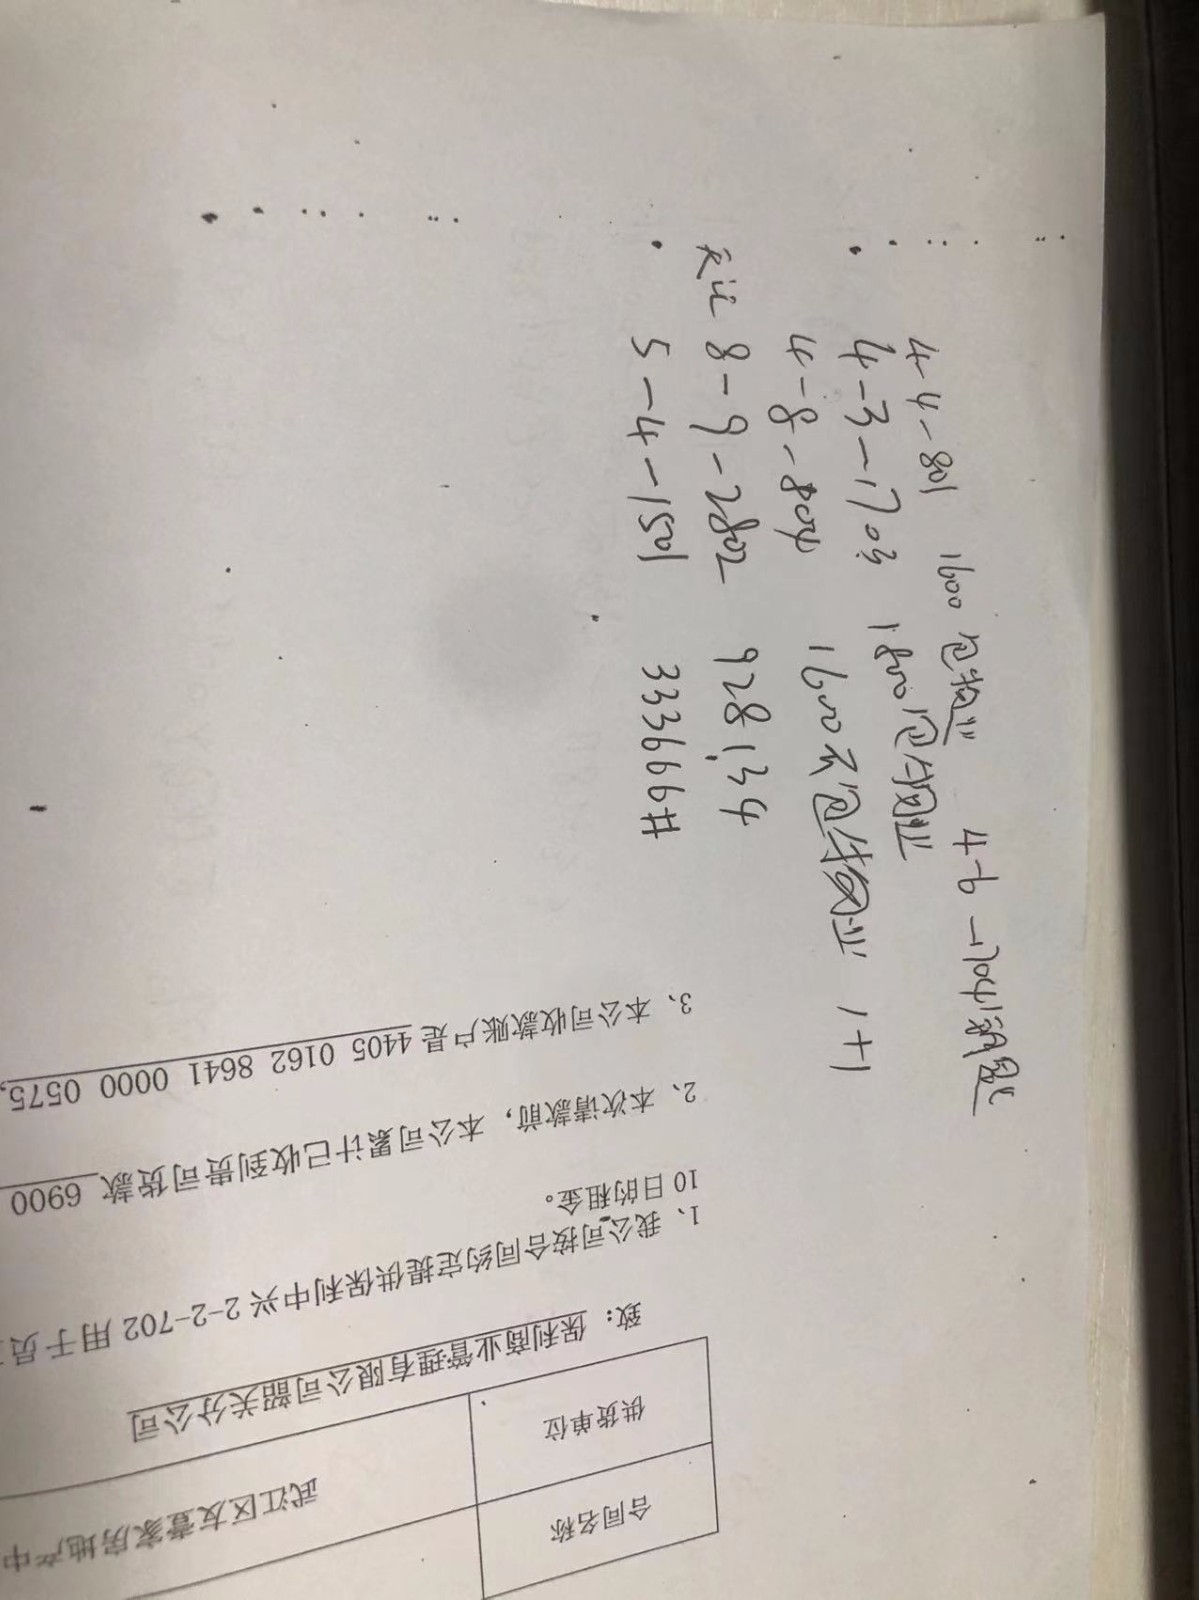 4-4-801 1600包物业 4-6-1704
4-3-1703 1800包物业
4-8-804 1600元包物业 1+1
8-9-2802 928134
5-4-1501 333666#
合同名称
供货单位 武江区友壹家房地产中
致：保利商业管理有限公司韶关分公司
1、我公司按合同约定提供保利中兴 2-2-702 用于员
10 日的租金。
2、本次请款前，本公司累计已收到贵司货款 6900
3、本公司收款账户是 4405 0162 8641 0000 0575,